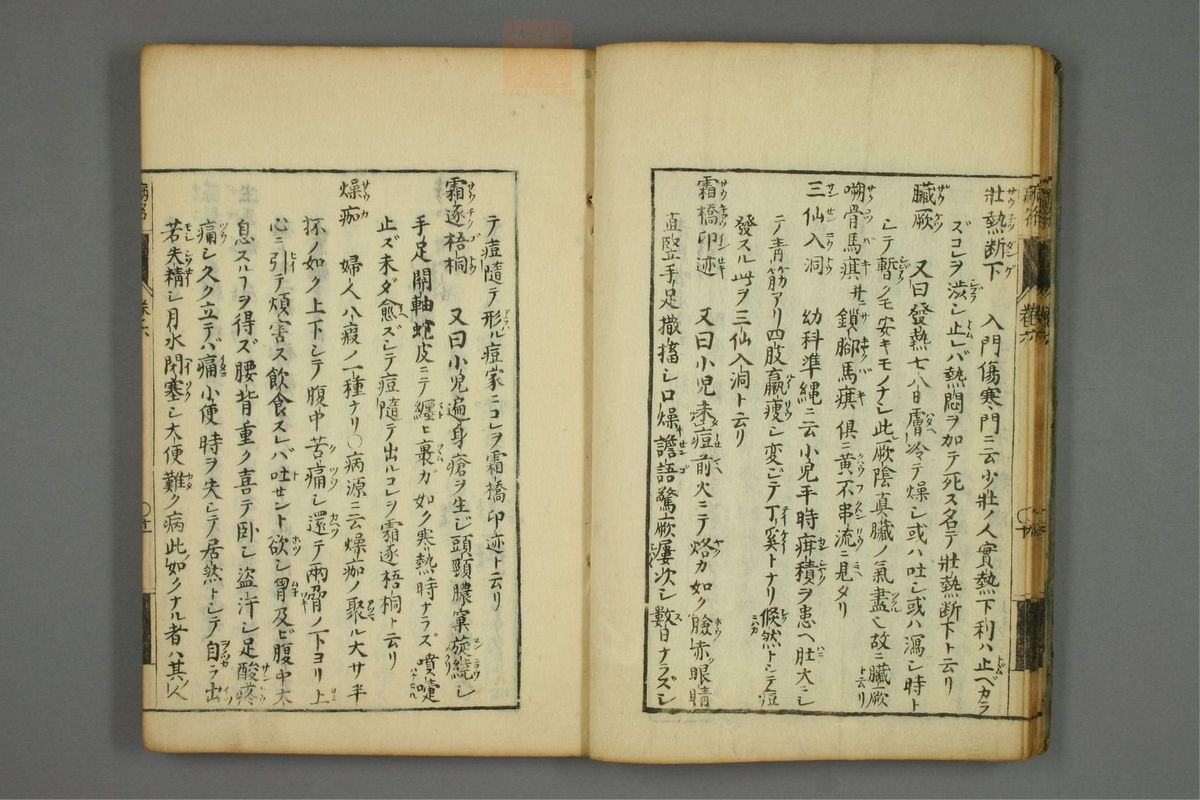 壯熱断下 入門傷寒門ニ云少壯ノ人實熱下利ハ止ベカラ
ズコレヲ渋シ止レバ熱悶ヲ加テ死ス名テ壯熱断下ト云リ
臓厥 又曰發熱七八日膚冷テ燥シ或ハ吐シ或ハ瀉シ時ト
シテ暫クモ安キモノナシ此厥陰真臓ノ氣盡也故ニ臓厥ト云リ
嗍骨馬疾并ニ鎖脚馬疾 俱ニ黄不串流ニ見タリ
三仙入洞 幼科準縄ニ云小児平時疳積ヲ患ヘ肚大ニシ
テ青筋アリ四肢羸痩シ変ジテ丁奚トナリ倏然トシテ痘
發スル此ヲ三仙入洞ト云リ
霜橋印迹 又曰小児未痘前火ニテ烙カ如ク臉赤眼睛
直竪手足撒搐シ口燥譫語驚厥屢次シ數日ナラズシ
テ痘隨テ形ル痘家ニコレヲ霜橋印迹ト云リ
霜逐梧桐 又曰小児遍身瘡ヲ生ジ頭頸膿窠旋繞シ
手足關軸蛇皮ニテ纏ヒ裹ガ如ク寒熱時ナラズ噴嚏
止ズ未ダ愈ズシテ痘隨テ出ルコレヲ霜逐梧桐ト云リ
燥痂 婦人八瘕ノ一種ナリ〇病源ニ云燥痂ノ聚ル大サ半
抔ノ如ク上下シテ腹中苦痛シ還テ兩脅ノ下ヨリ上
心ニ引テ煩害ス飲食スレバ吐セント欲シ胃及ビ腹中大
息スルヲ得ズ腰背重ク喜テ卧シ盗汗シ足酸疼
痛シ久ク立テバ痛小便時ヲ失シテ居然トシテ自ラ出
若失精シ月水閉塞シ大便難ク病此如クナル者ハ其人
病名
卷六